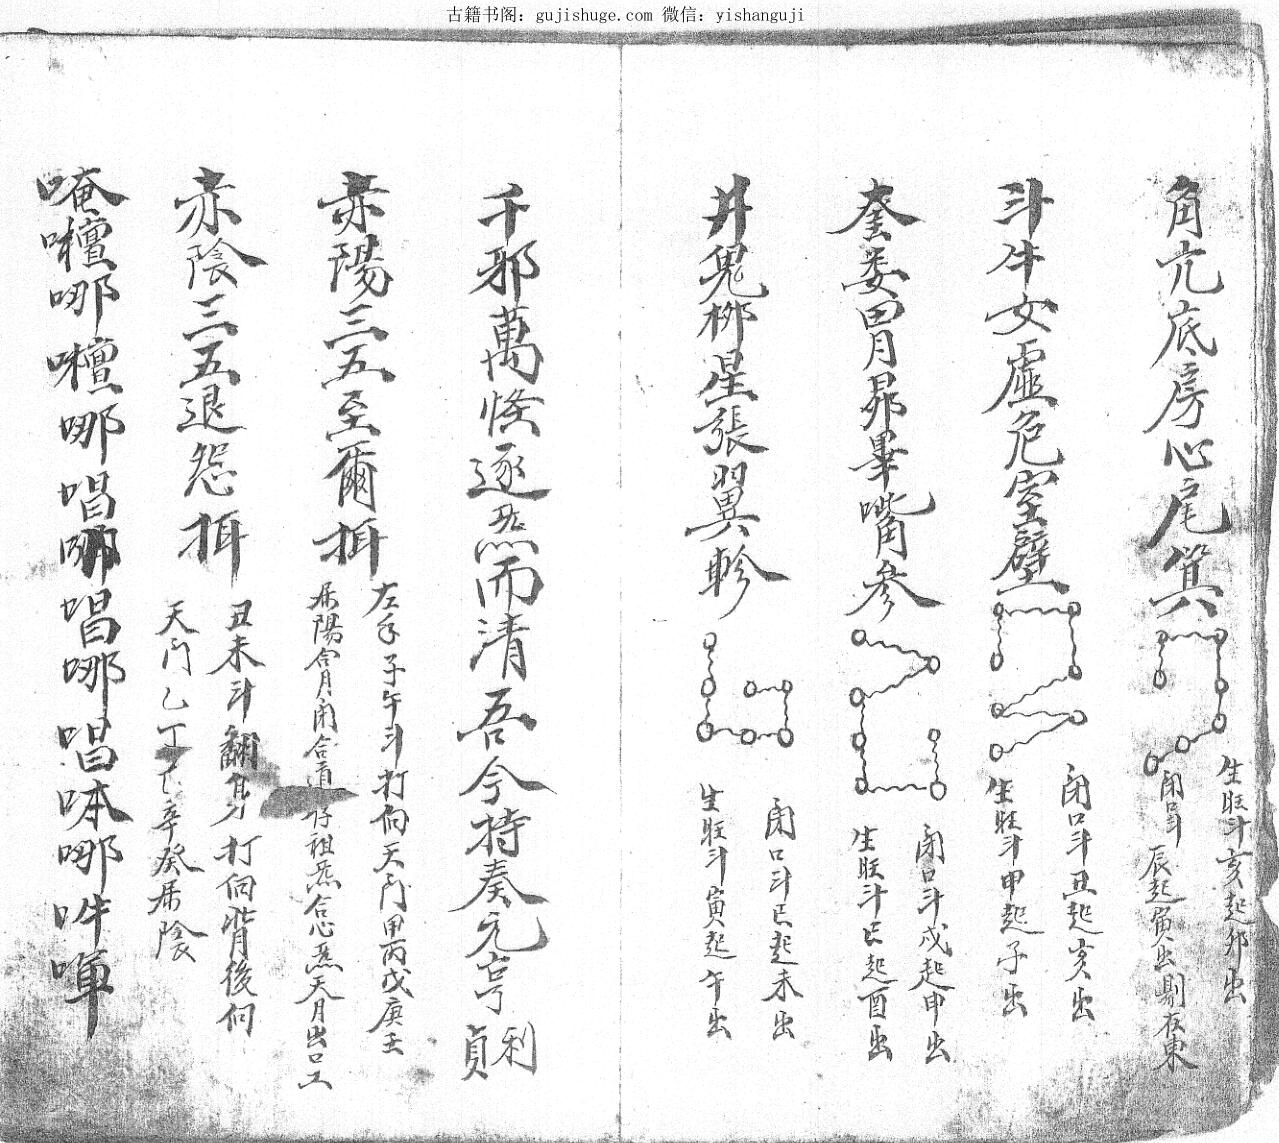 古籍书阁：gujishuge.com 微信：yishanguji
角亢底房心尾箕
生旺斗亥起卯出
闭口斗辰起寅出剔在東
斗牛女虛危室壁
闭口斗丑起亥出
生旺斗甲起子出
奎娄胃昴畢嘴参
闭口斗戍起申出
生旺斗巳起酉出
井鬼柳星張翼軫
闭口斗巳起未出
生旺斗寅起午出
千邪萬怪逐炁而清吾今持奏元亨利貞
赤陽三五至爾揖
左手子午斗打向天门甲丙戊庚壬
屬陽合月用合道存祖炁合心炁天月出口工
赤陰三五退怨揖
丑未斗翻身打向背後向
天门乙丁巳辛癸屬陰
唵嚫哪嚫哪唱哪唱哪唱呠哪吽㖮